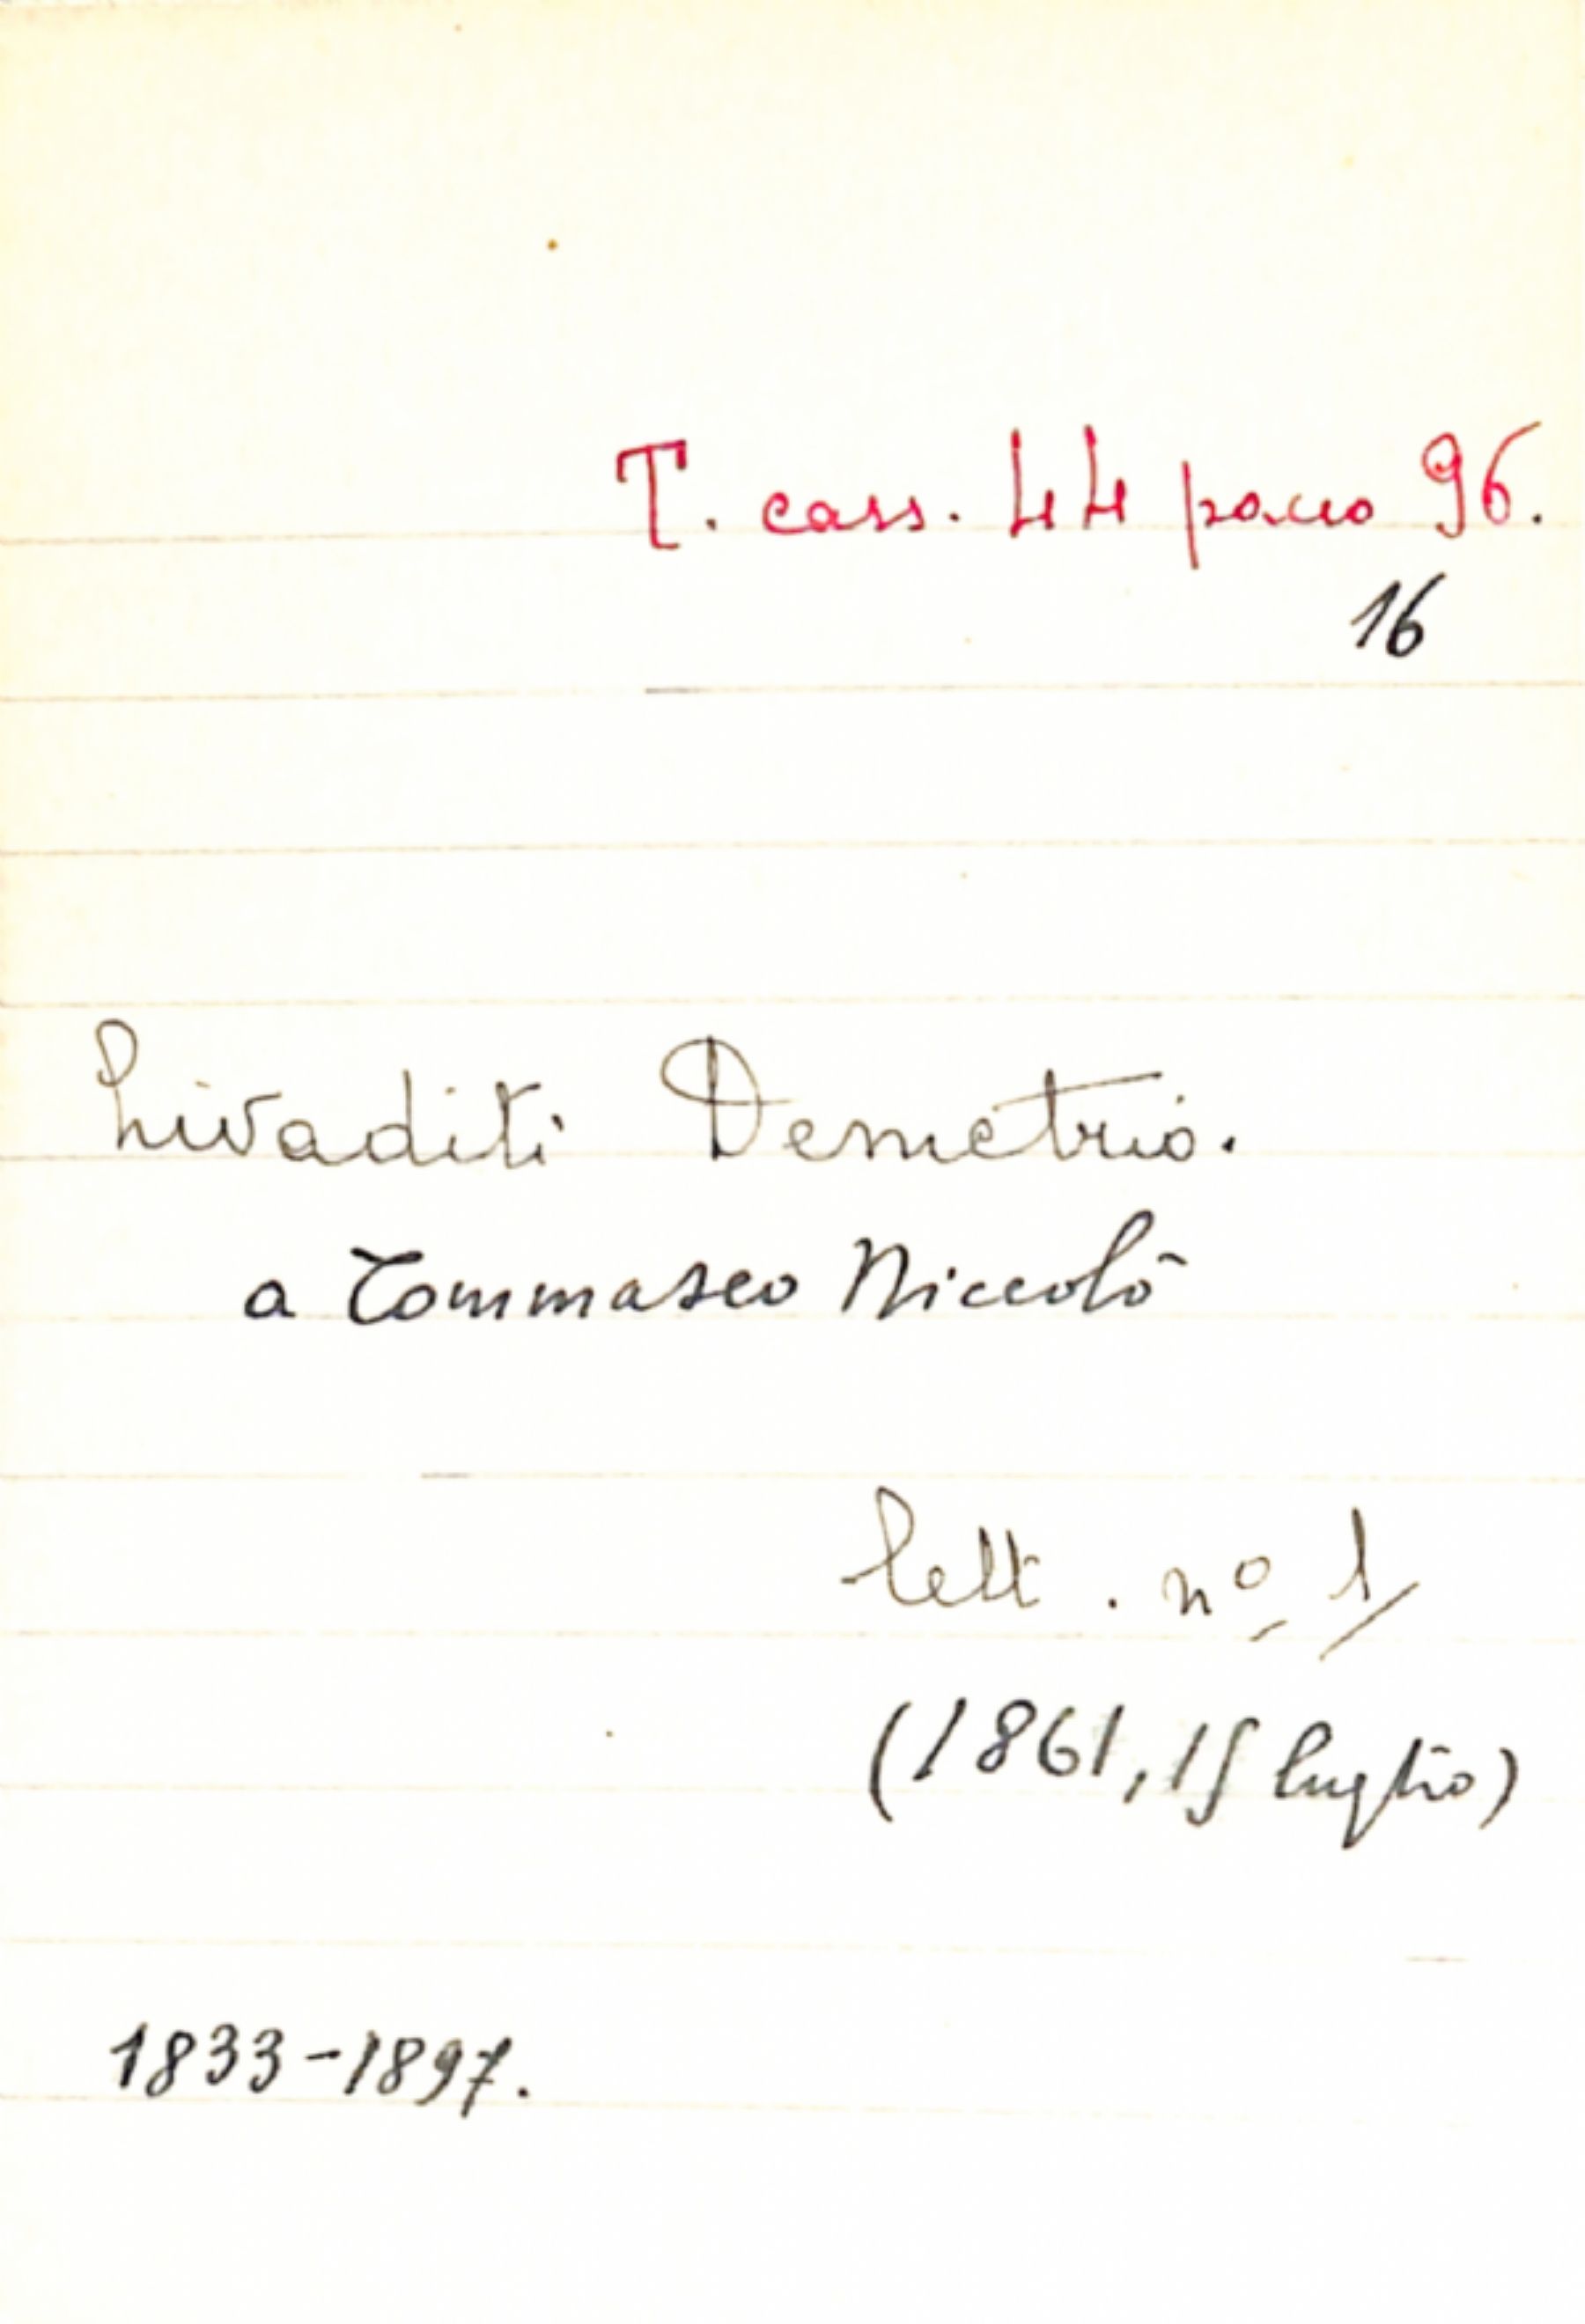 T. cass. 44 pacco 96.
16
Livaditi Demetrio.
a Tommaseo Niccolò
lett. nº 1
(1861, 15 luglio)
1833-1897.